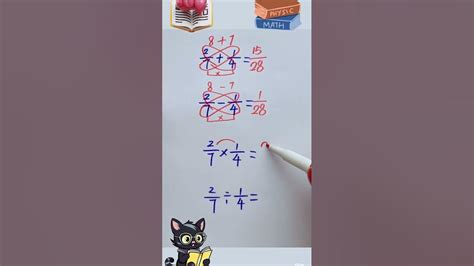 PHYSIC
MATH
8 + 7
2/7 + 1/4 = 15/28
×
8 - 7
2/7 - 1/4 = 1/28
×
2/7 × 1/4 =
2/7 ÷ 1/4 =